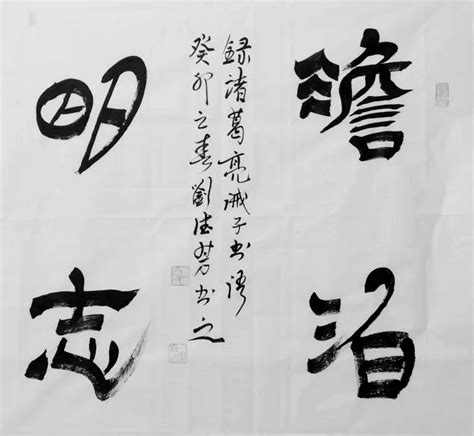 澹泊
録諸葛亮誡子书語
癸卯之春劉德芳书之
明志